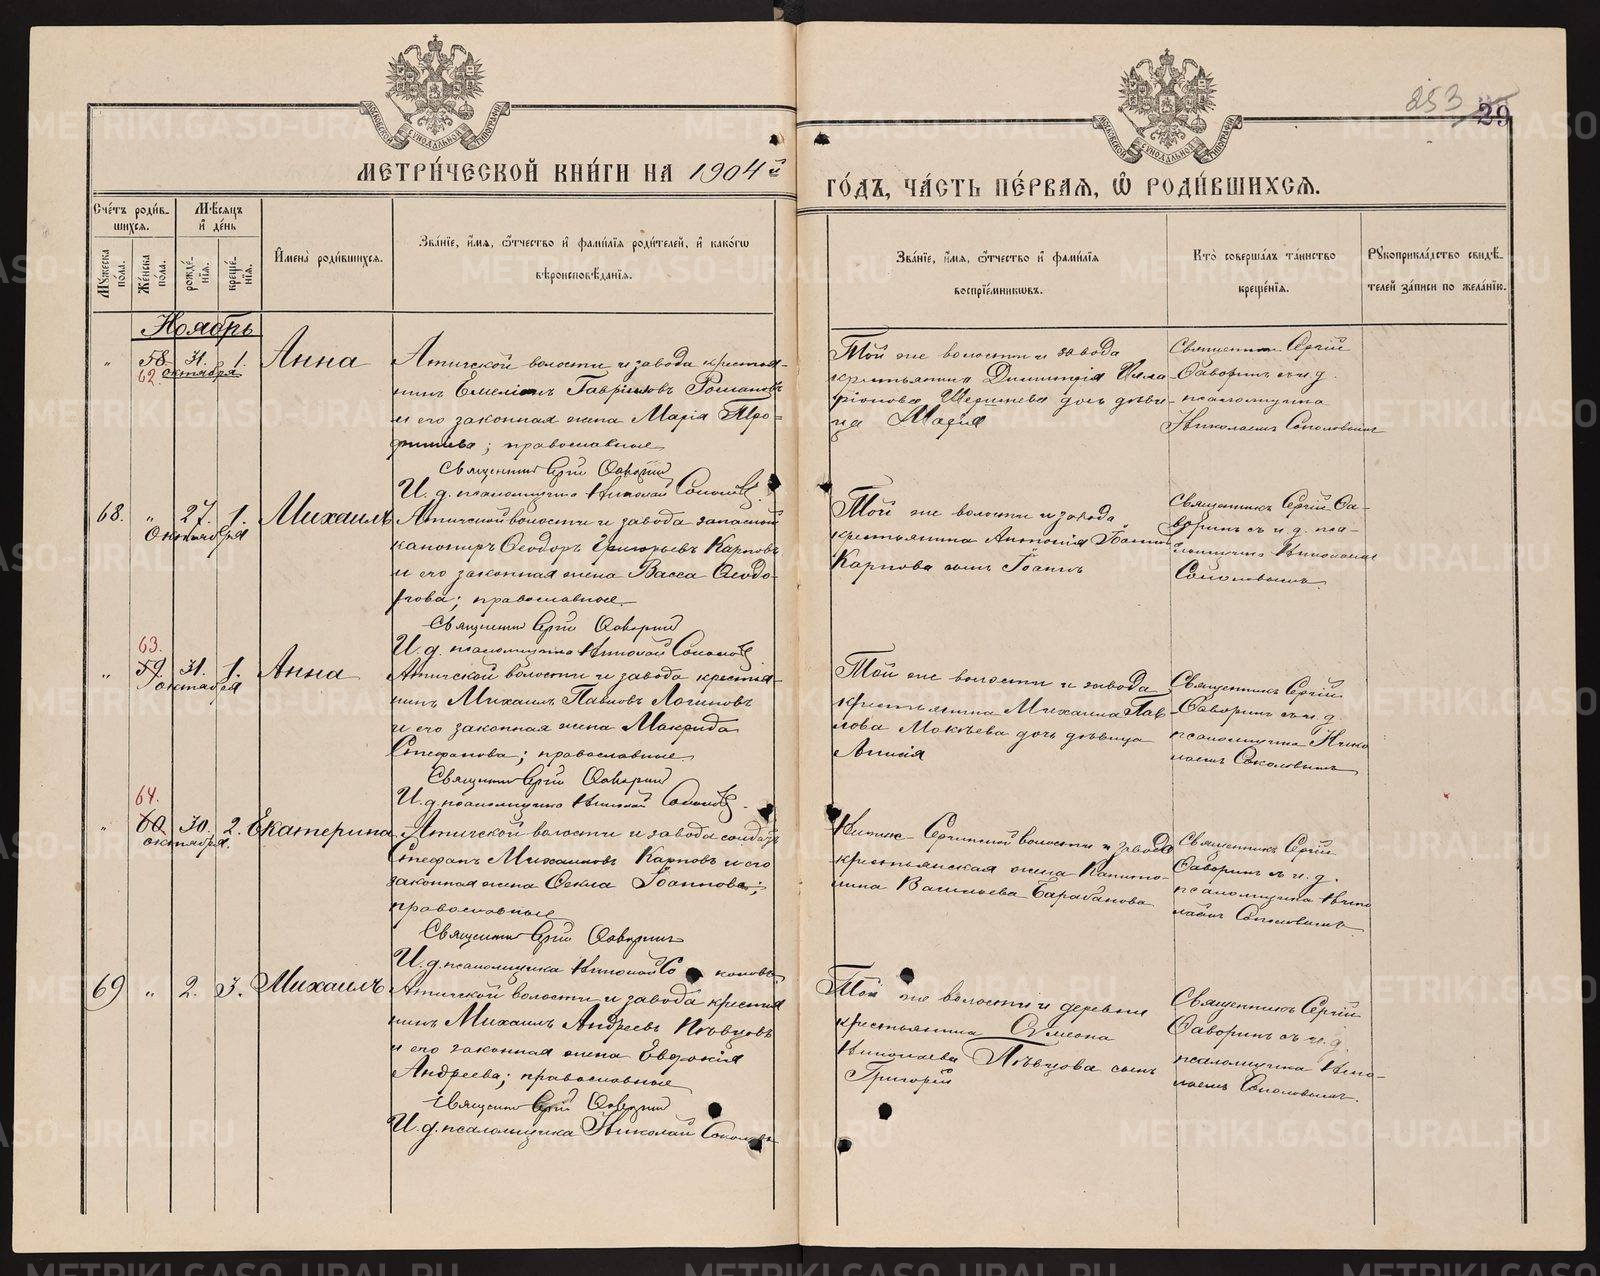 253 29
МОСКОВСКОЙ СѴНОДАЛЬНОЙ ТИПОГРАФІИ
МОСКОВСКОЙ СѴНОДАЛЬНОЙ ТИПОГРАФІИ
МЕТРИ́ЧЕСКОЙ КНИ́ГИ НА 1904й
ГО́ДЪ, ЧА́СТЬ ПЕ́РВАЯ, Ѽ РОДИ́ВШИХСЯ.
Сче́тъ роди́в-
шихся.
Мѣ́сяцъ
и҆ де́нь
Мꙋ́жеска по́ла.
Же́нска по́ла.
рожде́-
нїѧ.
креще́-
нїѧ.
И҆мена̀ роди́вшихся.
Зва́нїе, и҆́мя, ѻ҆́тчество и҆ фами́лїя роди́телей, и҆ како́гѡ
вѣроисповѣ́данїѧ.
Зва́нїе, и҆́мя, ѻ҆́тчество и҆ фами́лїя
воспрїе́мникѡвъ.
Кто̀ соверша́лъ та́инство
креще́нїѧ.
Рꙋкоприкла́дство свидѣ́-
телей за́писи по жела́нїю.
Ноябрь
" 58. 31. 1. Анна
62. октября
Атигской волости и завода крестья-
нинъ Емеліанъ Гавриловъ Романовъ
и его законная жена Марія Тро-
фимова; православные
Священникъ Сергій Саворинъ
И. д. псаломщика Николай Соколовъ.
Той же волости и завода
крестьянина Димитрія Илла-
ріонова дочь дѣви-
ца Марія
Священникъ Сергій
Саворинъ съ и. д.
псаломщика
Николаемъ Соколовымъ
68. " 27. 1. Михаилъ
Октября
Атигской волости и завода запасной
канониръ Ѳеодоръ Григорьевъ Карповъ
и его законная жена Васса Ѳеодо-
рова; православные.
Священникъ Сергій Саворинъ
И. д. псаломщика Николай Соколовъ
Той же волости и завода
крестьянина Антонія Іоаннова
Карпова сынъ Іоаннъ
Священникъ Сергій Са-
воринъ съ и. д. пса-
ломщика Николаемъ
Соколовымъ
63.
" 59. 31. 1. Анна
октября
Атигской волости и завода крестья-
нинъ Михаилъ Павловъ Логиновъ
и его законная жена Макрида
Стефанова; православные
Священникъ Сергій Саворинъ
И. д. псаломщика Николай Соколовъ.
Той же волости и завода
крестьянина Михаила Пав-
лова Мокѣева дочь дѣвица
Аннія
Священникъ Сергій
Саворинъ съ и. д.
псаломщика Нико-
лаемъ Соколовымъ
64.
" 60. 30. 2. Екатерина
октября.
Атигской волости и завода солдатъ
Стефанъ Михаиловъ Карповъ и его
законная жена Ѳекла Іоаннова;
православные
Священникъ Сергій Саворинъ
И. д. псаломщика Николай Соколовъ
Нижне-Сергинской волости и завода
крестьянская жена Капито-
лина Васильева Барабанова
Священникъ Сергій
Саворинъ съ и. д.
псаломщика Нико-
лаемъ Соколовымъ.
69 " 2. 3. Михаилъ
Атигской волости и завода крестья-
нинъ Михаилъ Андреевъ Пѣвцовъ
и его законная жена Евдокія
Андреева; православные
Священникъ Сергій Саворинъ
И. д. псаломщика Николай Соколовъ
Той же волости и деревни
крестьянина Сѵмеона
Николаева Пѣвцова сынъ
Григорій
Священникъ Сергій
Саворинъ съ и. д.
псаломщика Нико-
лаемъ Соколовымъ.
METRIKI.GASO-URAL.RU